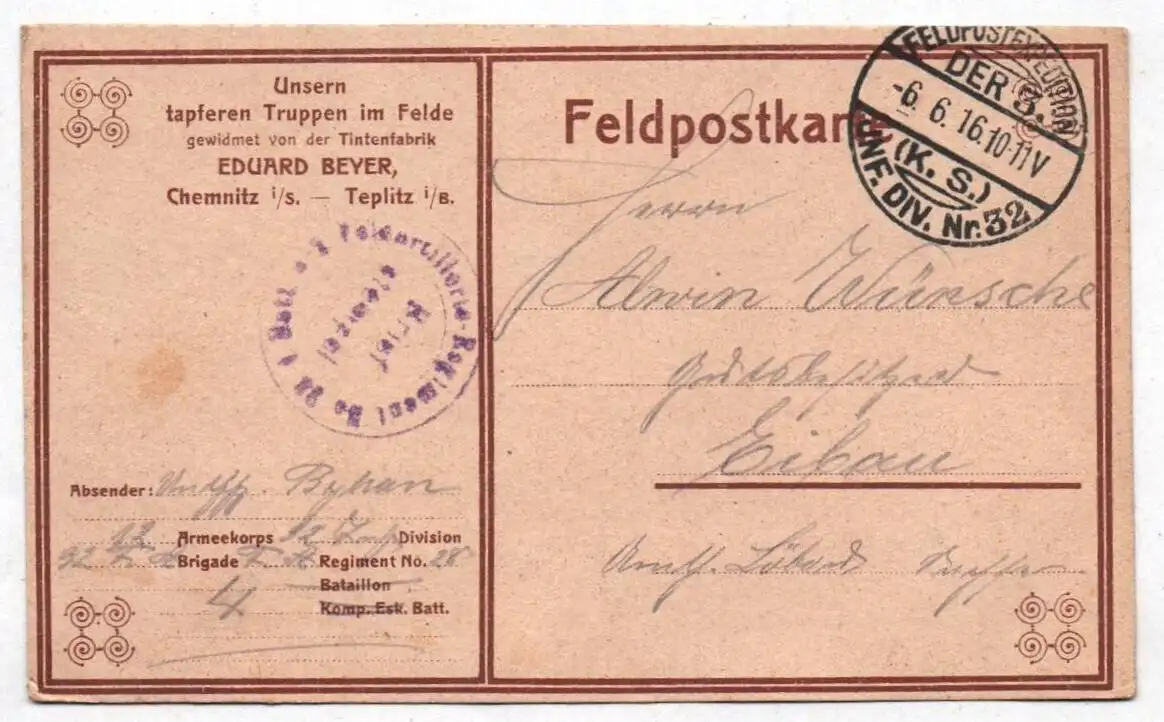 Unsern
tapferen Truppen im Felde
gewidmet von der Tintenfabrik
EDUARD BEYER,
Chemnitz i/S. — Teplitz i/B.
Feldpostkarte
FELDPOSTEXPEDITION
DER 3.
-6. 6. 16. 10-11V
(K. S.)
INF. DIV. Nr. 32
Feldartillerie-Regiment No 28
Brief
stempel
Herrn
Alwin Wünsche
Gutsbesitzer
Eibau
Amth. Löbau Sachsen
Absender: Untffz.
Armeekorps 32 Inf. Division
32 F. A. Brigade F. A. Regiment No. 28
Bataillon
4 Komp. Esk. Batt.